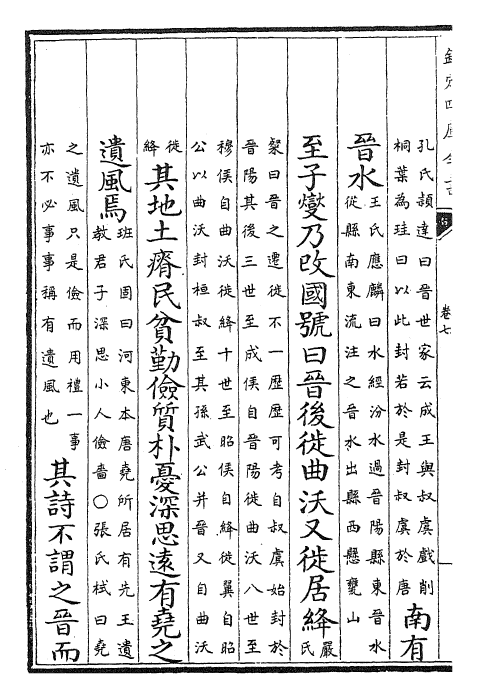 欽定四庫全書
卷七
孔氏頴達曰晉世家云成王與叔虞戲削
桐葉為珪曰以此封若於是封叔虞於唐
南有
晉水
王氏應麟曰水經汾水過晉陽縣東晉水
從縣南東流注之晉水出縣西懸甕山
至子燮乃改國號曰晉後徙曲沃又徙居絳
嚴
氏
粲曰晉之遷徙不一歴歴可考自叔虞始封於
晉陽其後三世至成侯自晉陽徙曲沃八世至
穆侯自曲沃徙絳十世至昭侯自絳徙翼自昭
公以曲沃封桓叔至其孫武公并晉又自曲沃
徙
絳
其地土瘠民貧勤儉質朴憂深思遠有堯之
遺風焉
班氏固曰河東本唐堯所居有先王遺
教君子深思小人儉嗇○張氏栻曰堯
之遺風只是儉而用禮一事
亦不必事事稱有遺風也
其詩不謂之晉而